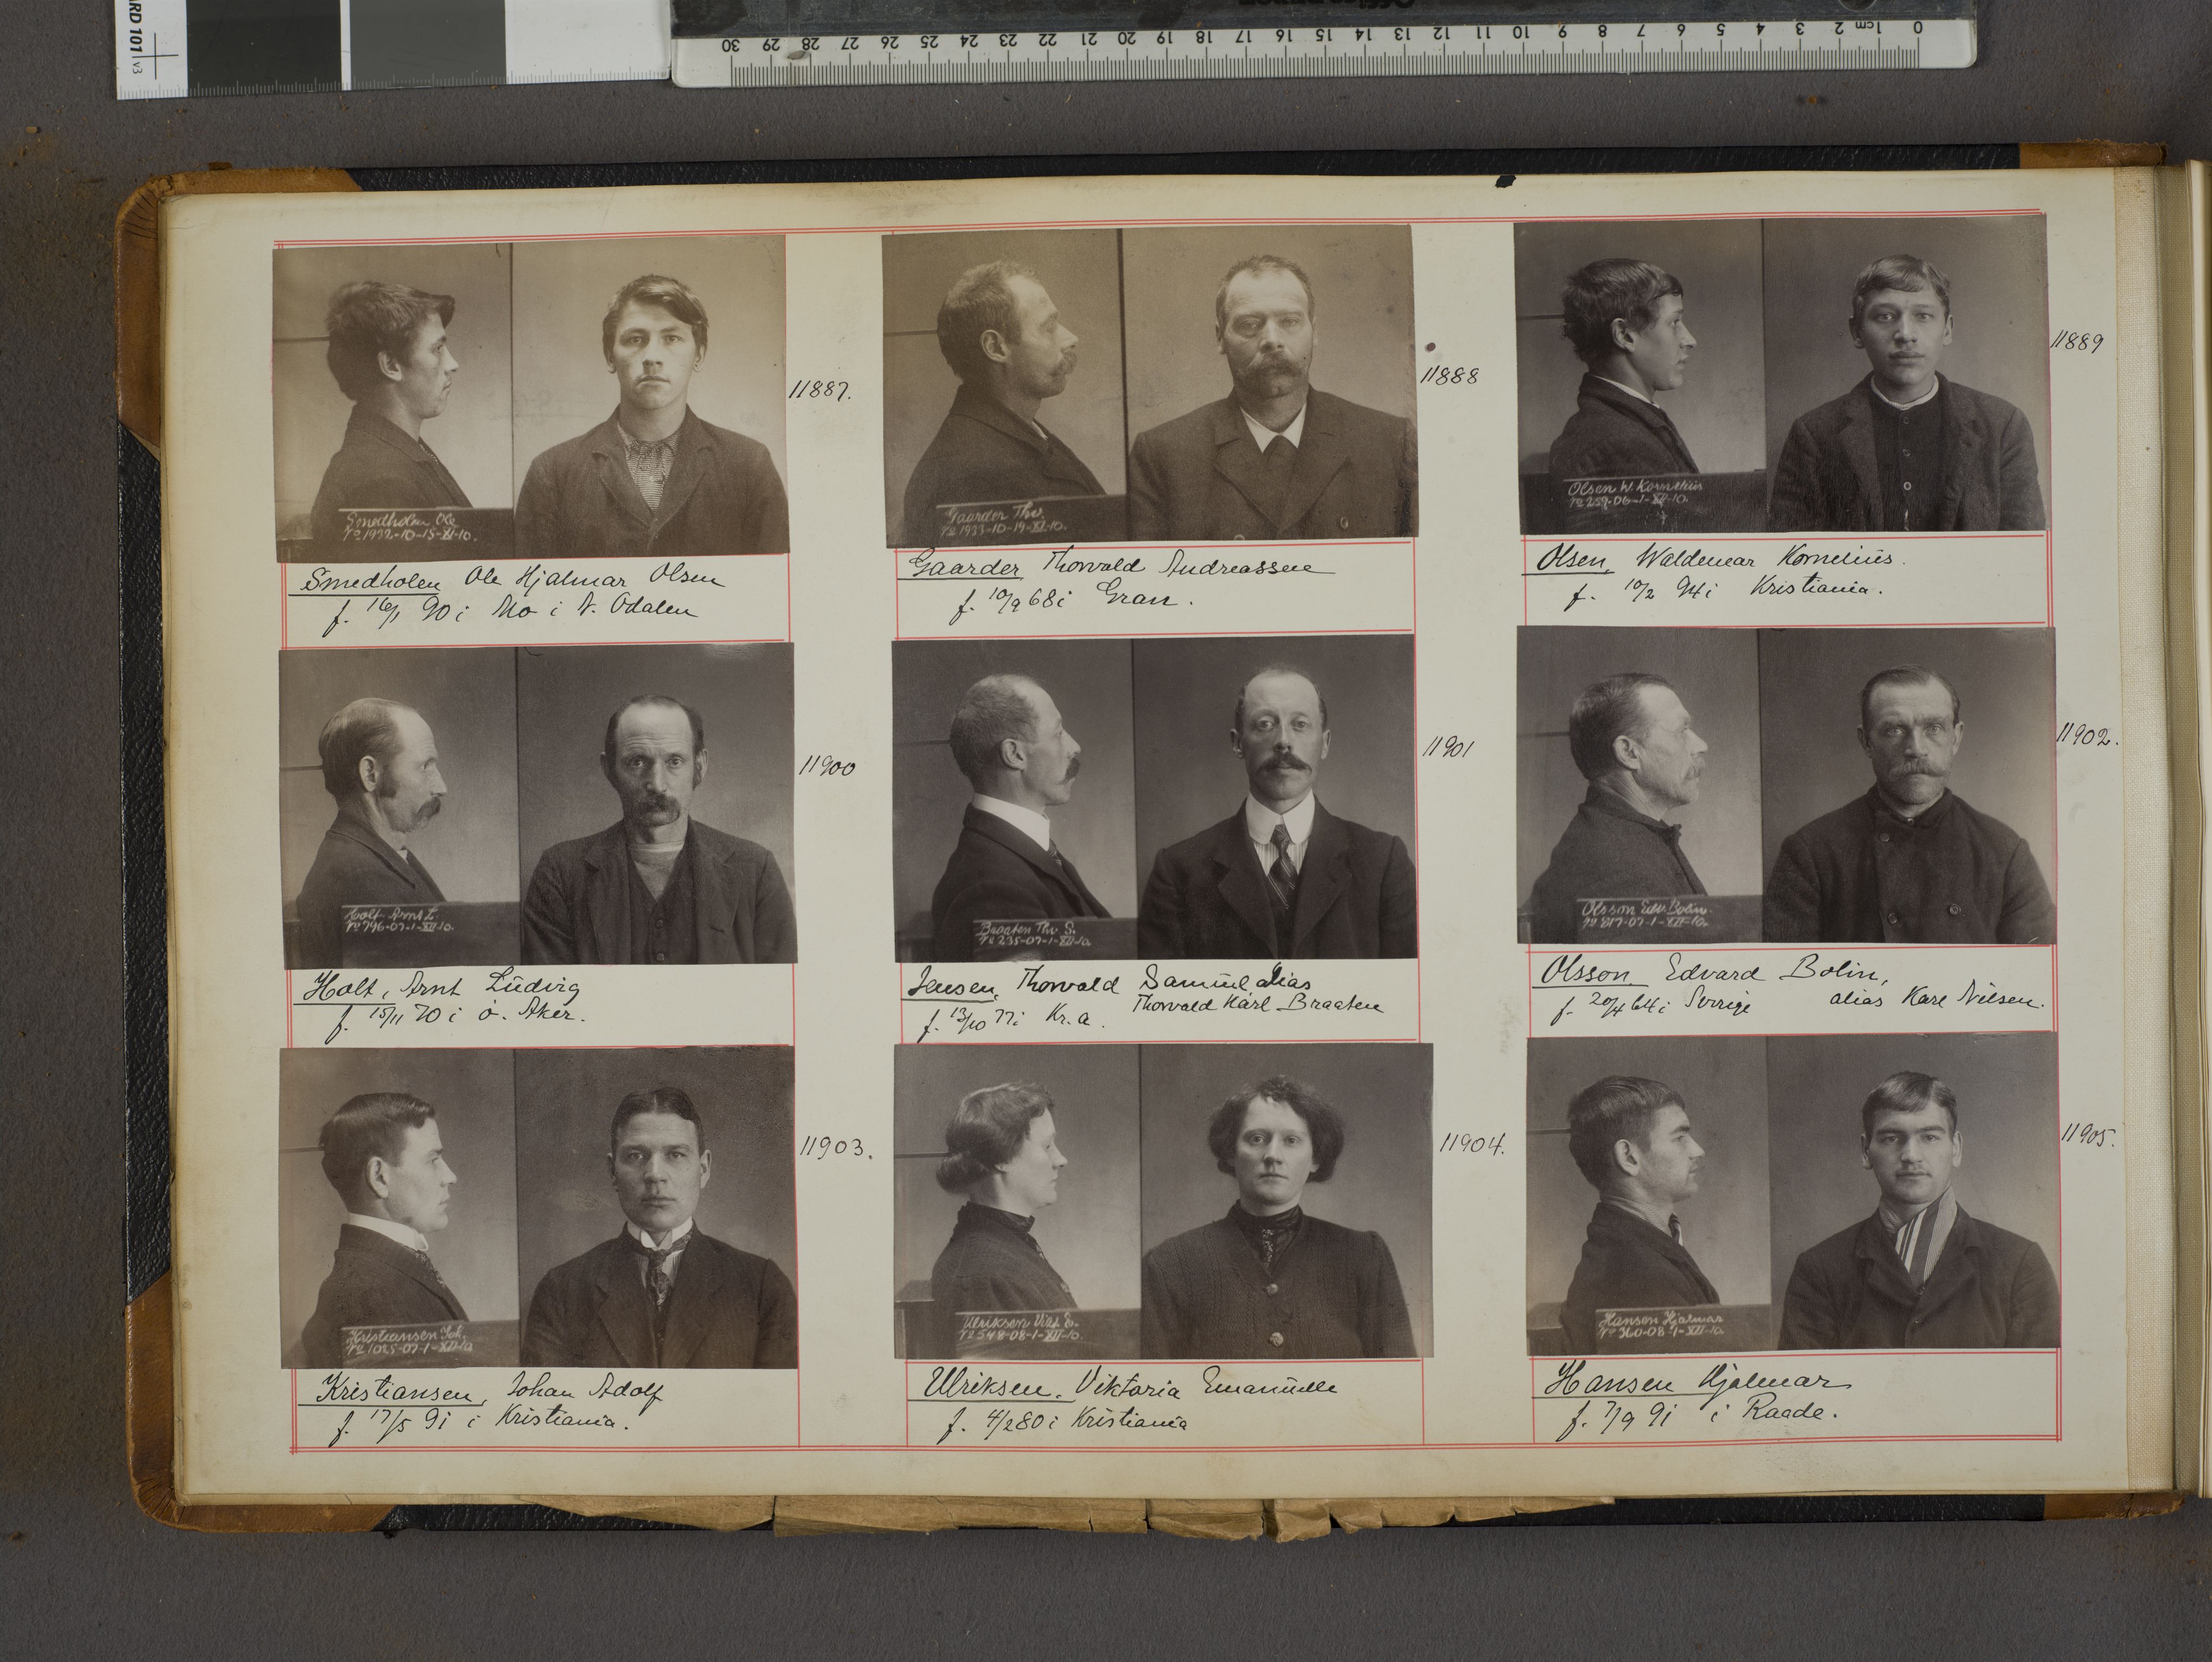 30 29 28 27 26 25 24 23 22 21 20 19 18 17 16 15 14 13 12 11 10 9 8 7 6 5 4 3 2 1cm 0
ARD 101 v3
Smedholen Ole
No 1932-10-15-XI-10.
11887.
Smedholen Ole Hjalmar Olsen
f. 16/1 90 i Mo i N. Odalen
Gaarder Thv.
No 1933-10-19-XI-10.
11888
Gaarder Thorvald Andreassen
f. 10/9 68 i Gran.
Olsen W. Kornelius
No 259-06-1-XII-10.
11889
Olsen, Waldemar Kornelius.
f. 10/2 94 i Kristiania.
Holt Arnt L.
No 796-07-1-XII-10.
11900
Holt, Arnt Ludvig
f. 15/11 70 i ö. Aker.
Braaten Thv. S.
No 235-07-1-XII-10
11901
Jensen, Thorvald Samuel alias
Thorvald Karl Braaten
f. 13/10 77 i Kr.a.
Olsson Edv. Bolin.
No 817-07-1-XII-10.
11902.
Olsson, Edvard Bolin,
alias Karl Nilsen.
f. 20/4 64 i Sverige
Kristiansen Joh.
No 1025-07-1-XII-10
11903.
Kristiansen, Johan Adolf
f. 17/5 91 i Kristiania.
Ulriksen Vikt. E.
No 548-08-1-XII-10.
11904.
Ulriksen, Viktoria Emanuelle
f. 4/2 80 i Kristiania
Hansen Hjalmar
No 360-08-1-XII-10
11905.
Hansen Hjalmar
f. 7/9 91 i Raade.